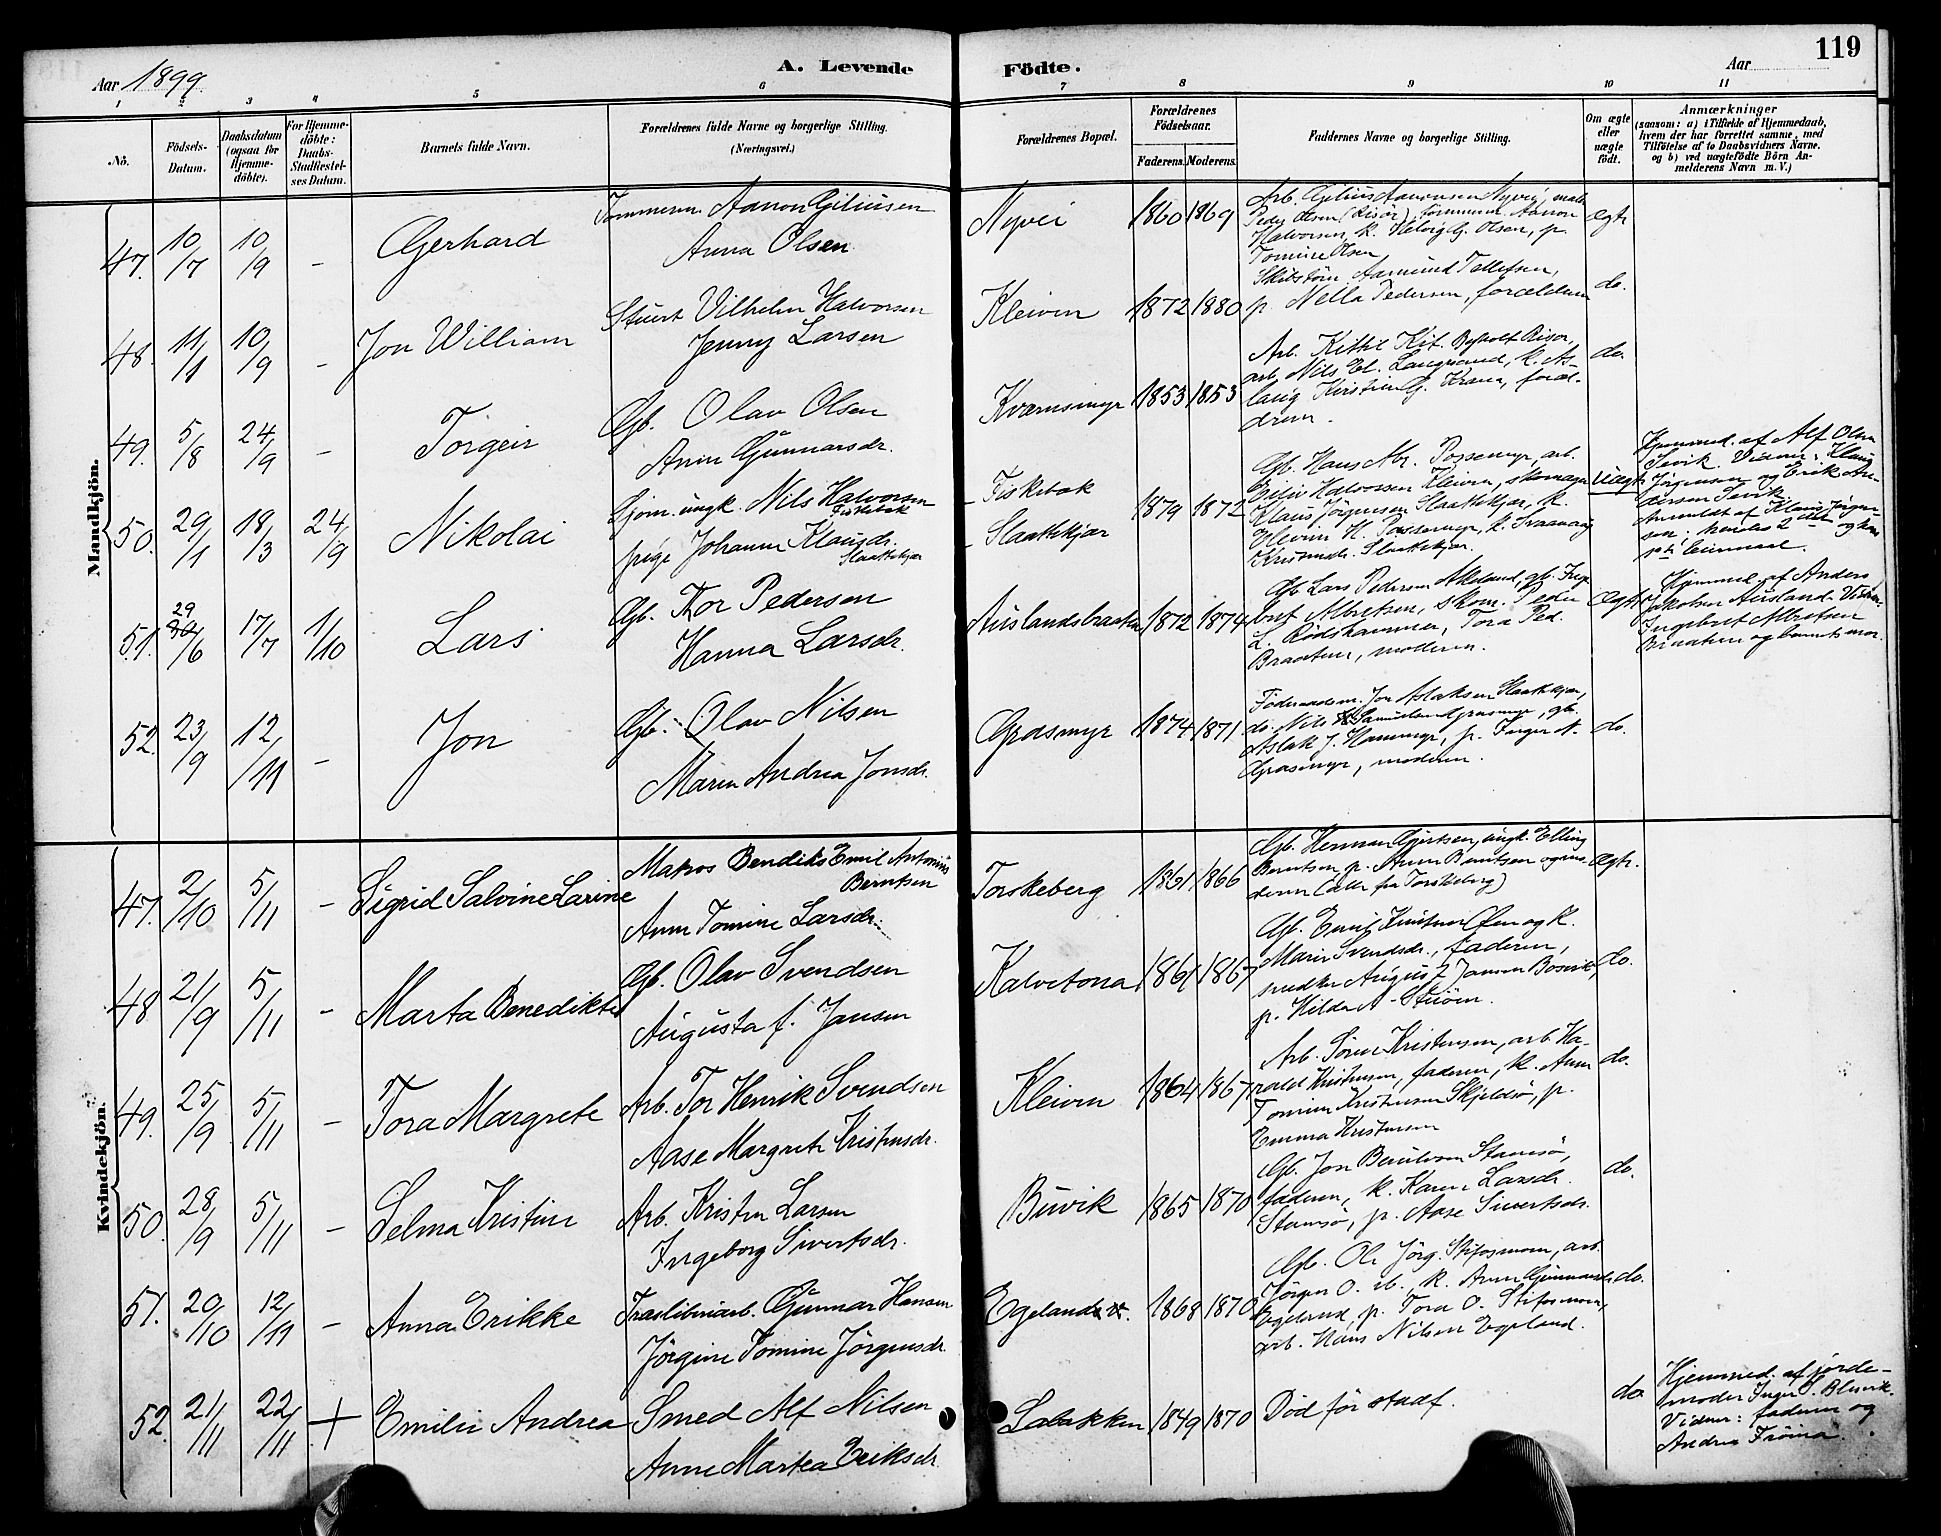 119
Aar 1899.
A. Levende Födte.
Aar
1 2 3 4 5 6 7 8 9 10 11
No.
Födsels-Datum.
Daabsdatum (ogsaa for Hjemme-döbte).
For Hjemme-döbte: Daabs-Stadfæstel-ses Datum.
Barnets fulde Navn.
Forældrenes fulde Navne og borgerlige Stilling. (Næringsvei.)
Forældrenes Bopæl.
Forældrenes Födselsaar.
Faderens. Moderens.
Faddernes Navne og borgerlige Stilling.
Om ægte eller uægte födt.
Anmærkninger
(saasom: a) i Tilfælde af Hjemmedaab,
hvem der har forrettet samme, med
Tilföielse af to Daabsvidners Navne.
og b) ved uægtefödte Börn An-
melderens Navn m. V.)
Mandkjön.
47. 10/7 10/9 - Gerhard
Tømmerm Aanon Giliusen
Anna Olsen
Nyvei 1860 1869
Halvorsen, k.
Tomine Olsen
Ægte
48. 11/1 10/9 - Jon William
Stuert Vilhelm Halvorsen
Jenny Larsen
Kleiven 1872 1880
Skibstøm. Aamund Tellefsen,
p Nella Pedersen, forældrene
do.
49. 5/8 24/9 - Torgeir
Gb. Olav Olsen
Anne Gunnarsdr.
Kvernsmyr 1853 1853
Arb. Kittil Kit.
arb. Nils El. Langsand, k. As-
laug Kirstine G. Krana, foræl-
drene.
do.
50. 29/1 18/3 24/9 Nikolai
Sjøm. ungk. Nils Halvorsen
Fiskebæk
pige Johanne Klausdr.
Slaatekjær
- Fiskebæk
- Slaatekjær
1879 1872
Gb. Hans Ar. Possemyr, arb.
Halvorsen Kleiven, skomager
Klaus Jörgensen Slaatekjær, k.
H. Possemyr, k.
Slaatekjær.
Uægte
Hjemmed. af Alf Olsen
Sevik. Vidner: Klaus
Jörgensen og Erik An-
dersen Sevik.
Anmeldt af Klaus Jörgen-
sen, hendes 2 og hans
51. 29/6 17/7 1/10 Lars
Gb. Tor Pedersen
Hanna Larsdr.
Auslandsbraaten 1872 1874
Gb Lars Pedersen Akeland, gb. Inge-
bret Albretsen, skom. Peder
L. Rödshammer, Tora Ped.
Braaten, moderen.
Ægte
Hjemmed. af Anders
Jakobsen Ausland. Vidner:
Ingebret Albretsen
Braaten og barnets mor.
52. 23/9 12/11 - Jon
Gb. Olav Nilsen
Maren Andrea Jonsdr.
Græsmyr 1874 1871
Föderaadsm. Jon Aslaksen Slaatekjær,
do. Nils Samuelsen Græsmyr, gb.
Aslak J. Hammyr, p. Inger N.
Græsmyr, moderen.
do.
Kvindekjön.
47. 2/10 5/11 - Sigrid Salvine Larine
Matros Bendiks Emil Antonius
Berntsen
Anne Tomine Larsdr.
Torskeberg 1861 1866
Gb. Herman Gjertsen, ungk. Elling
Berntsen, p. Anne Berntsen og mo-
deren (alle fra Torskeberg)
Ægte.
48 21/9 5/11 - Marta Benedikte
Gb. Olav Svendsen
Augusta f. Jansen
Kalvetona 1861 1867
Gb. Emil Knutsen Øen og k.
Maren Svendsdr., faderen,
snedker August Jansen Bosvik,
p. Hilda A.
do.
49. 25/9 5/11 - Tora Margrete
Arb. Tor Henrik Svendsen
Aase Margrete Kristensdr.
Kleiven 1864 1867
Arb. Sören Kristensen, arb. Ha-
rald Kristensen, faderen, k. Anne
Tomine Kristensen Skjeldsö, p.
Emma Kristensen
do.
50. 28/9 5/11 - Selma Kristine
Arb. Kristen Larsen
Ingeborg Sivertsdr.
Buvik 1865 1870
Gb. Jon Stamsö,
faderen, k. Karen Larsdr.
Stamsö, p. Aase Sivertsdr.
do.
51. 20/10 12/11 - Anna Erikke
Træsliberiarb. Gunnar Hansen
Jörgine Tomine Jörgensdr.
Egeland 1868 1870
Gb. Ole Jörg. Stifosmoen, arb.
Jörgen O. ib., k. Anne Gunnarsdr.
Egeland, p. Tora O. Stifosmoen,
arb. Hans Nilsen Egeland.
do.
52. 21/11 22/11 + Emilie Andrea
Smed Alf Nilsen
Anne Martea Eriksdr.
Labakken 1849 1870
Död för stadf.
do
Hjemmed. af jorde-
moder Inger
Vidner: faderen og
Andrea